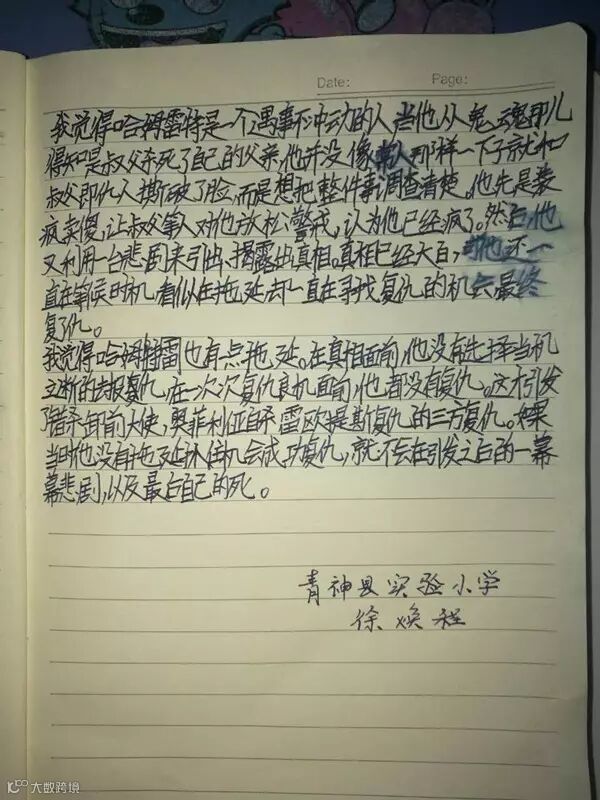 Date: Page:
我觉得哈姆雷特是一个遇事不冲动的人 当他从鬼魂那儿
得知是叔父杀死了自己的父亲,他并没像常人那样一下子就和
叔父即仇人撕破了脸,而是想把整件事调查清楚。他先是装
疯卖傻,让叔父等人对他放松警戒,认为他已经疯了。然后,他
又利用一台悲剧来引出、揭露出真相。真相已经大白,可他还一
直在等候时机,看似在拖延,却一直在寻找复仇的机会 最终
复了仇。
我觉得哈姆特雷也有点拖延。在真相面前,他没有选择当机
立断的去报复仇,在一次次复仇良机面前,他都没有复仇。这才引发
了错杀御前大使,奥菲利亚自杀 雷欧提斯复仇的三方复仇。如果
当时他没有拖延抓住机会成功复仇,就不会在引发之后的一幕
幕悲剧,以及最后自己的死。
青神县实验小学
徐焕程
大数跨境